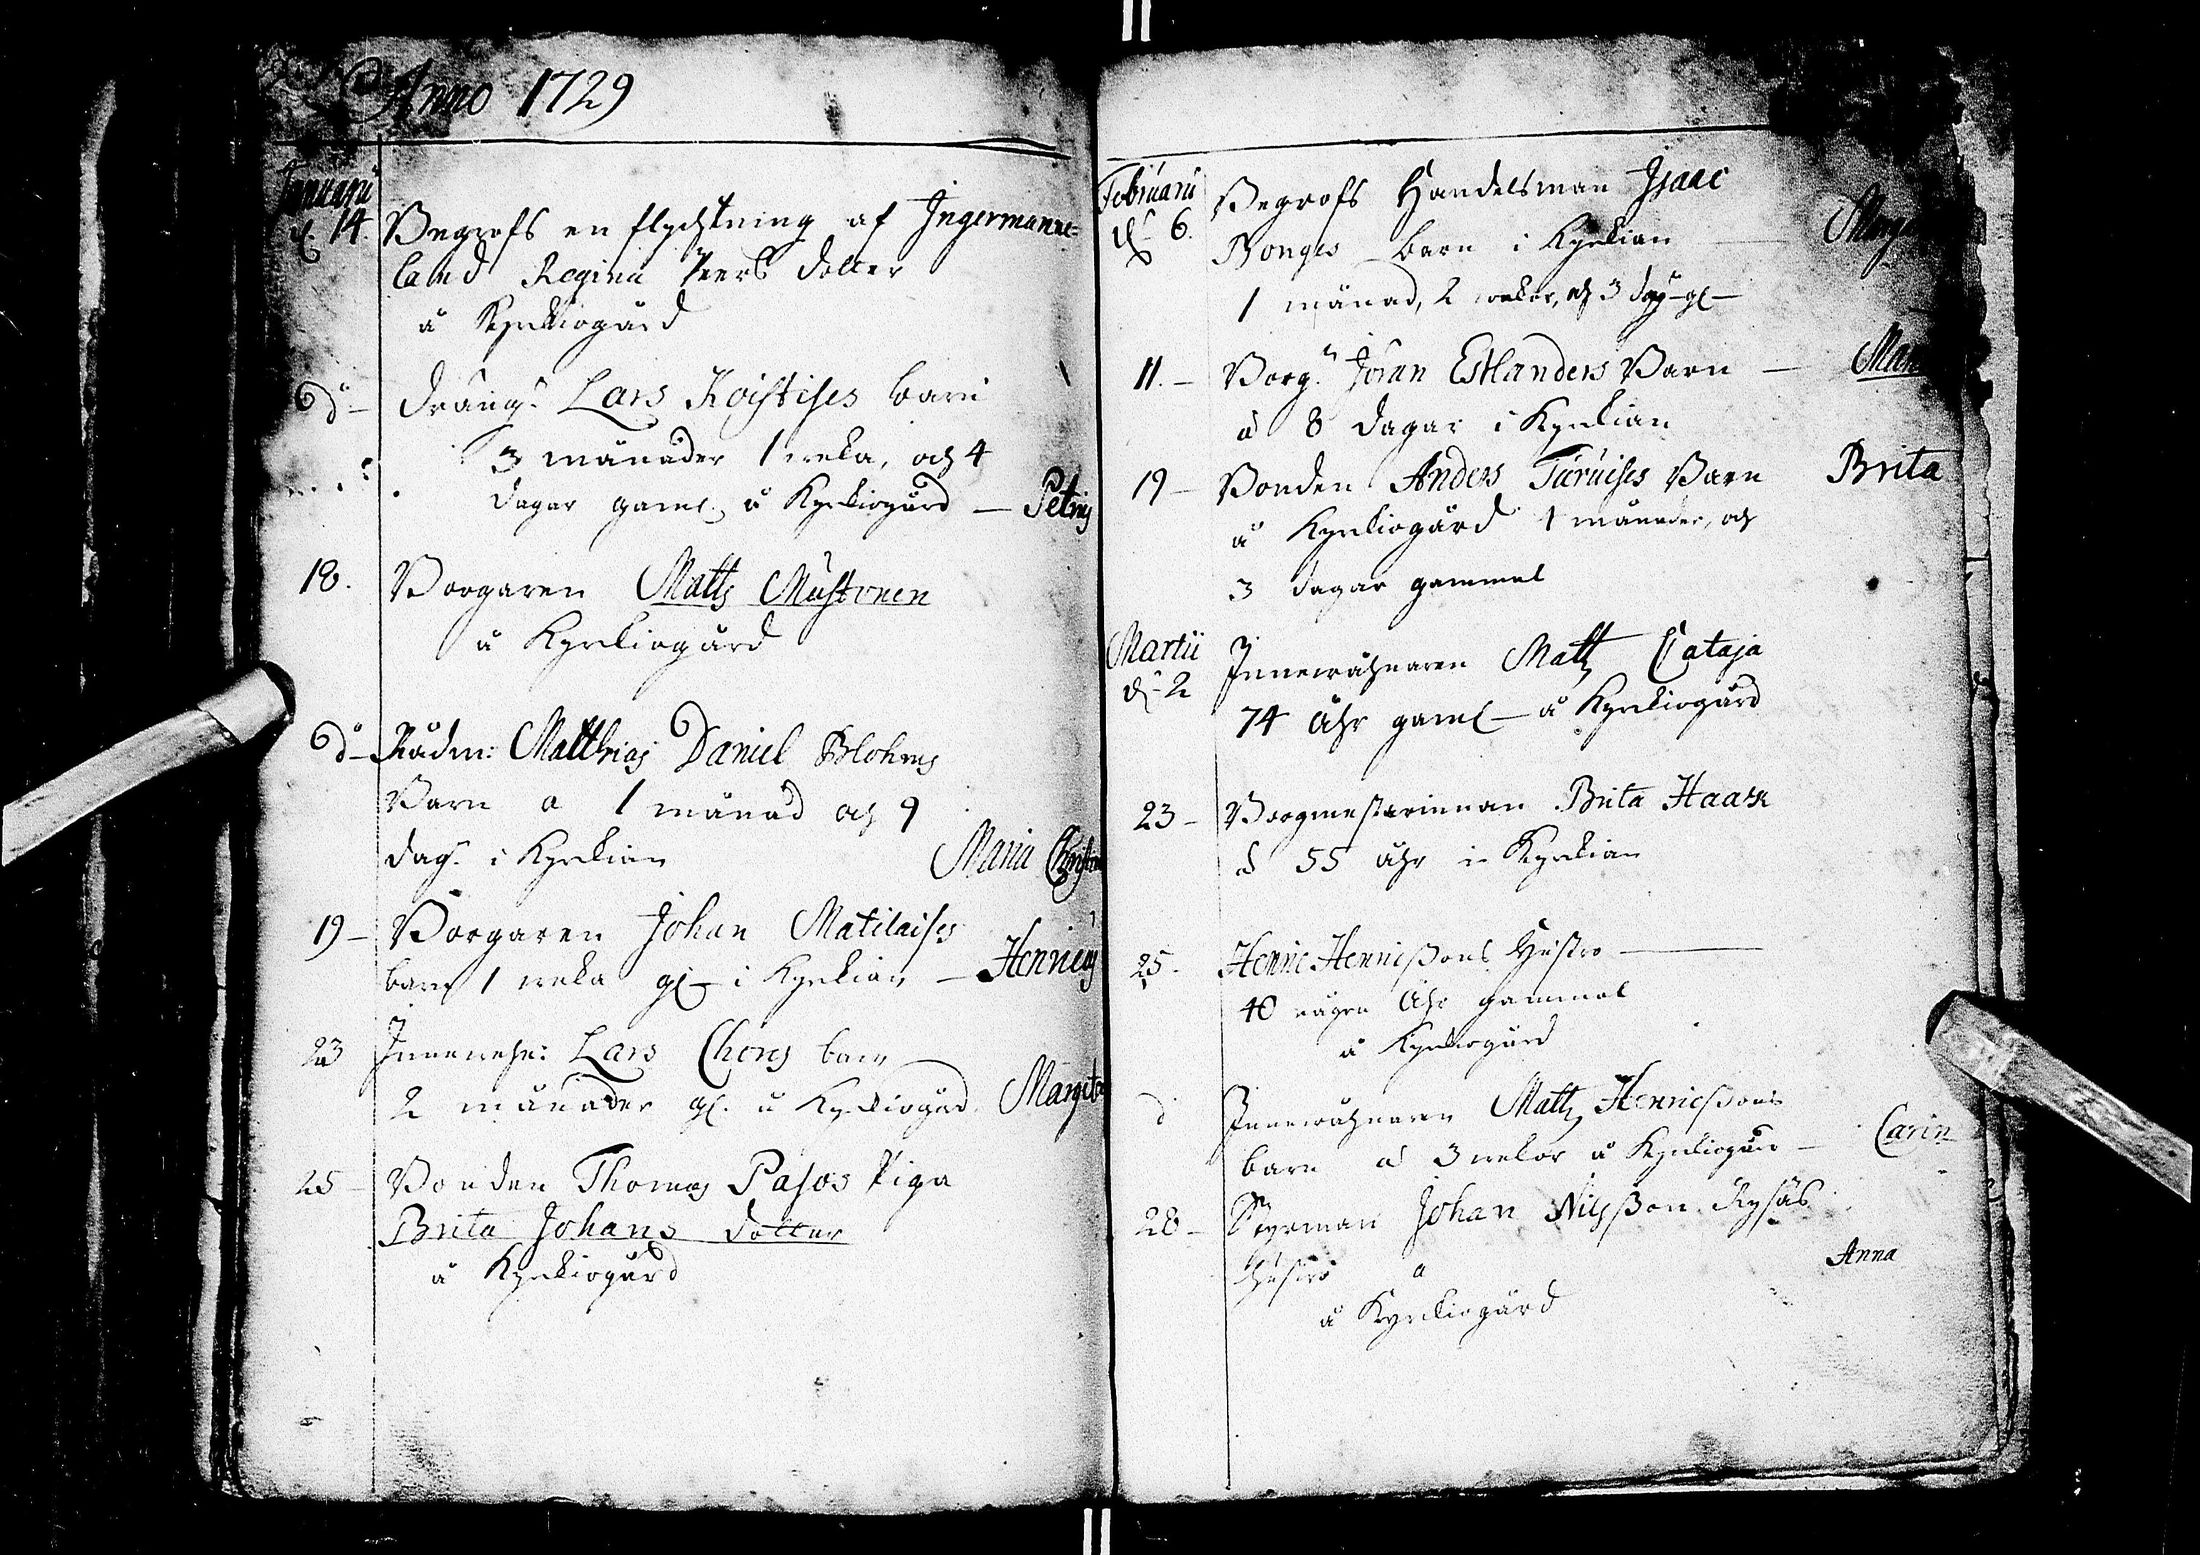 Anno 1729
Januarii
d. 14. Begrofs en flychtning af Ingermanne=
land Regina Peers dotter
å Kyrkiogård
do Dräng: Lars Koistises barn
3 månader 1 weka, och 4
dagar gaml. å Kyrkiogård — Petrus
18. Borgaren Matts Mustonen
å Kyrkiogård
do Rådm: Matthias Daniel Blohms
Barn a 1 månad och 9
dag. i Kyrkian Maria Christina
19 — Borgaren Johan Matilaises
barn 1 weka gl — i Kyrkian — Henricus
23 Innewohn: Lars Chons barn —
2 månader gl. å Kyrkiogård. Margeta
25 — Bonden Thomas Pasos Piga
Brita Johans dotter
å Kyrkiogård
Februarii
d. 6. Begrofs Handelsman Isaac
Bonges barn i Kyrkian —
1 månad, 2 wekor, och 3 dag. gl —
11. — Borg.n Jöran Estlanders Barn —
a 8 dagar i Kyrkian
19 — Bonden Anders Taruises Barn Brita
å Kyrkiogård 1 månader, och
3 dagar gammal
Martii
d. 2 Innewåhnaren Matts Cataja
74 åhr gaml — å Kyrkiogård
23 — Borgmesterinnan Brita Haask
a 55 åhr i Kyrkian
25. Henric Henricßons Hustro —
40 någre Åhr gammal
å Kyrkiogård
d Innewåhnaren Matts Henricßons
barn a 3 wekor å Kyrkiogård — Carin
28 — Styrman Johan Nilsßon
Hustro a Anna
å Kyrkiogård